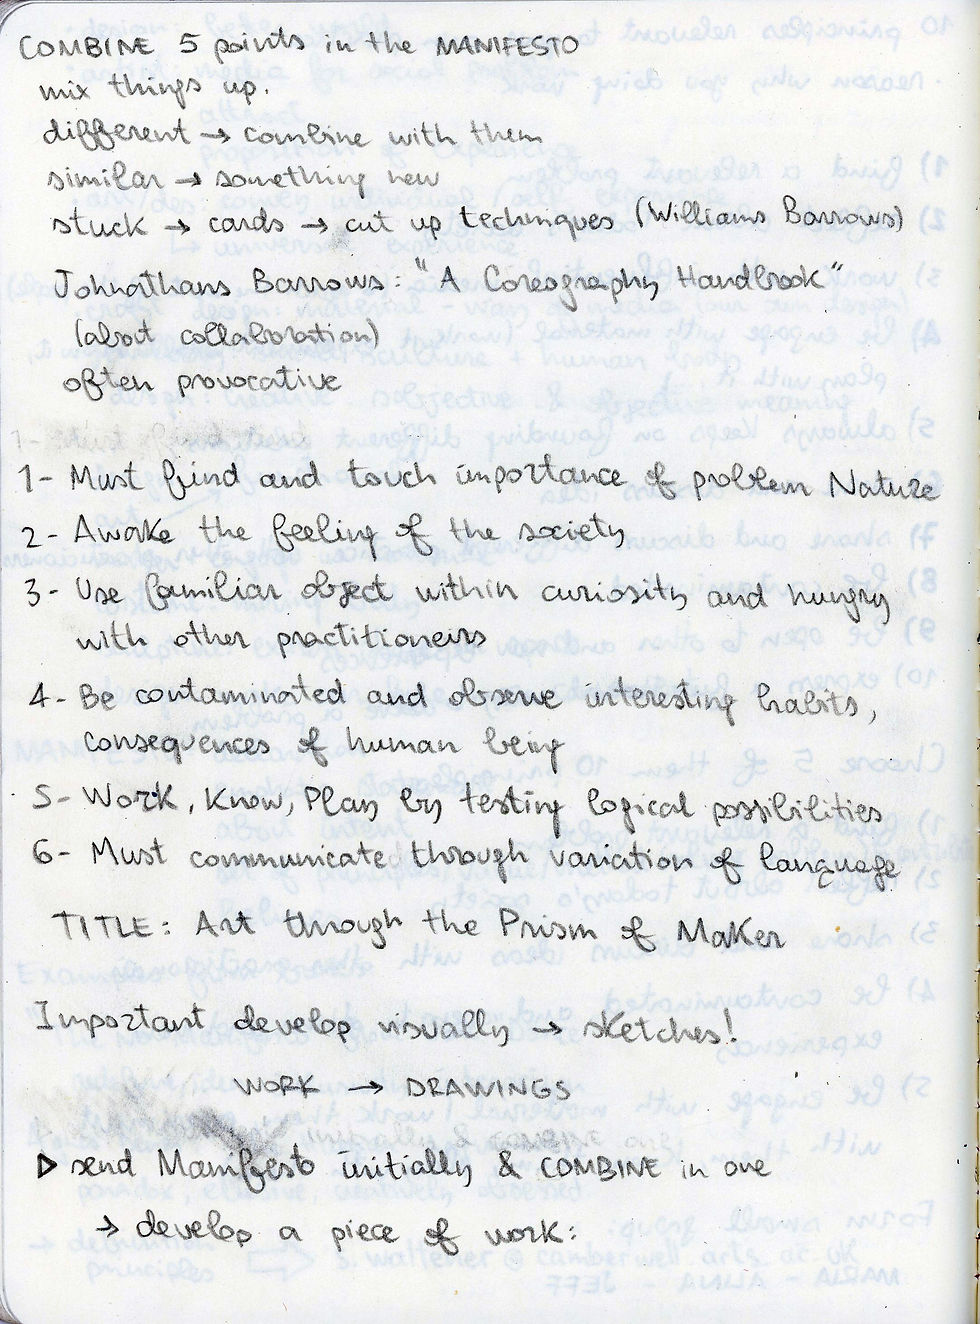 COMBINE 5 points in the MANIFESTO
mix things up.
different → combine with them
similar → something new
stuck → cards → cut up techniques (Williams Barrows)
Johnathans Barrows: "A Coreography Handbook"
(about collaboration)
often provocative
1- Must find and touch importance of problem Nature
2- Awake the feeling of the society
3- Use familiar object within curiosity and hungry
with other practitioners
4- Be contaminated and observe interesting habits,
consequences of human being
5- Work, Know, Play by testing logical possibilities
6- Must communicate through variation of language
TITLE: Art through the Prism of Maker
Important develop visually → sketches!
WORK → DRAWINGS
▷ send Manifesto initially & COMBINE in one
→ develop a piece of work: